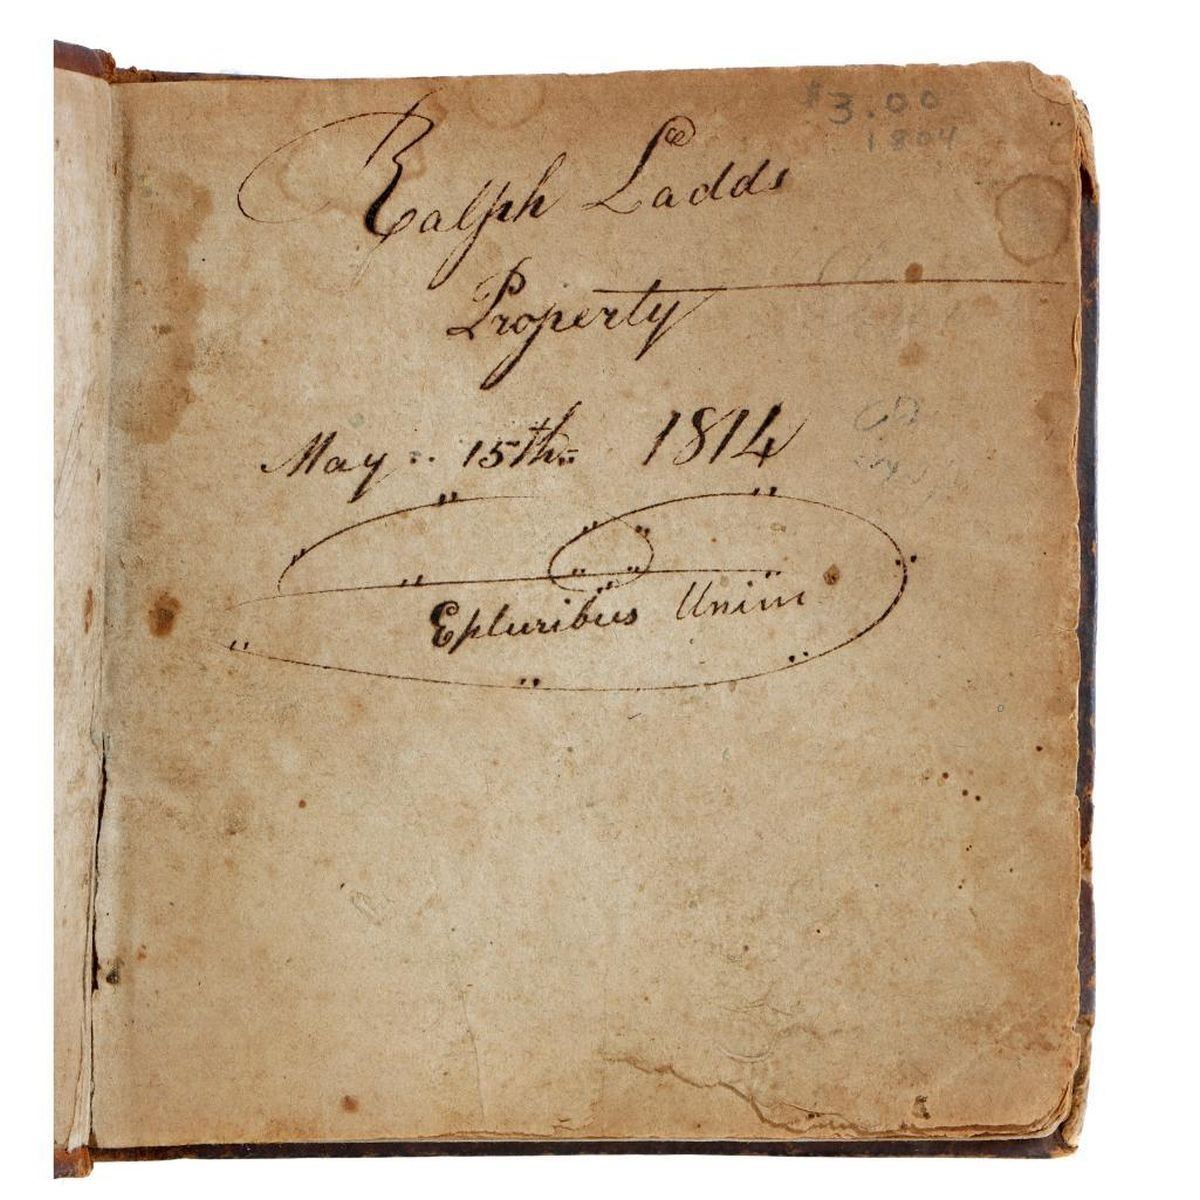 $3.00
1804
Ralph Ladds
Property
May 15th 1814
Epluribus Unim